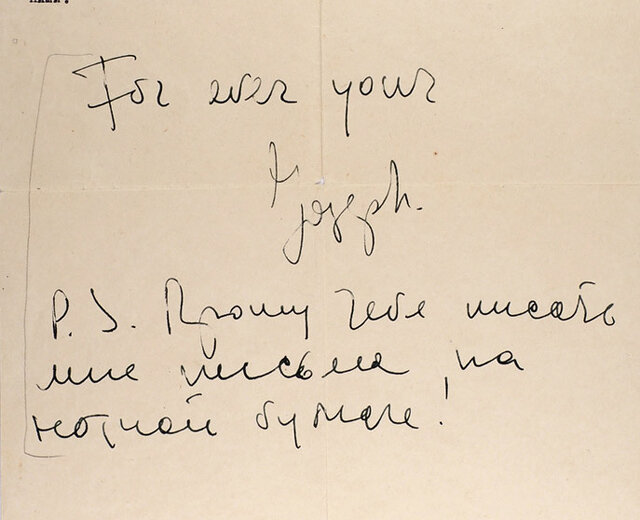 For ever your
Joseph.
P.S. Прошу тебя писать
мне письма на
нотной бумаге!